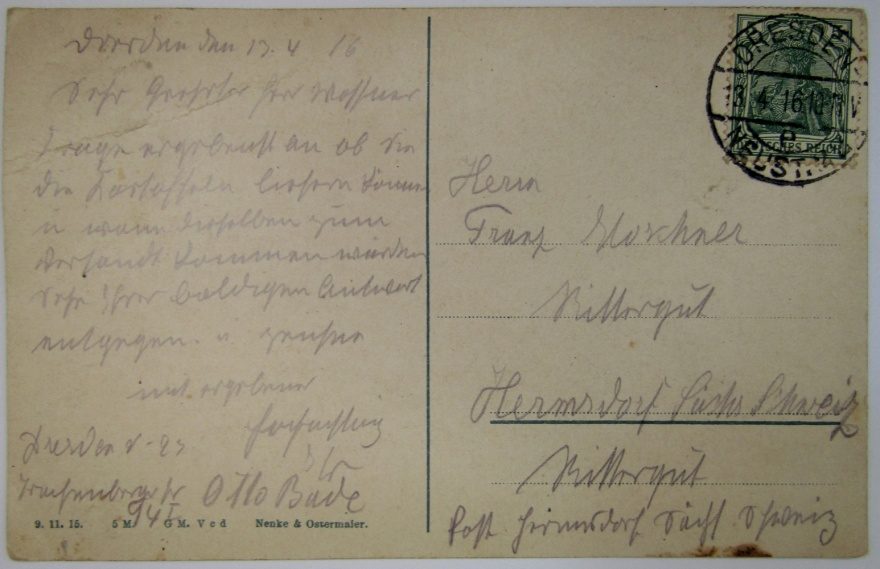 Dresden den 13.4 16
Sehr Geehrter Herr
Frage ergebenst an ob Sie
die Kartoffeln liefern können
u wann dieselben zum
Versandt kommen würden
Sehe Ihrer baldigen Antwort
entgegen. u zeichne
mit ergebener
Hochachtung
Otto Bade
Dresden N-23
Trachenbergerstr
9. 11. 15. 5 M. G M. Ved Nenke & Ostermaier.
DRESDEN
13.4.16.10-11V
e
NEUST.
DEUTSCHES REICH
Herrn
Franz
Rittergut
Hermsdorf Sächs Schweiz
Rittergut
Post Hermsdorf Sächs Schweiz